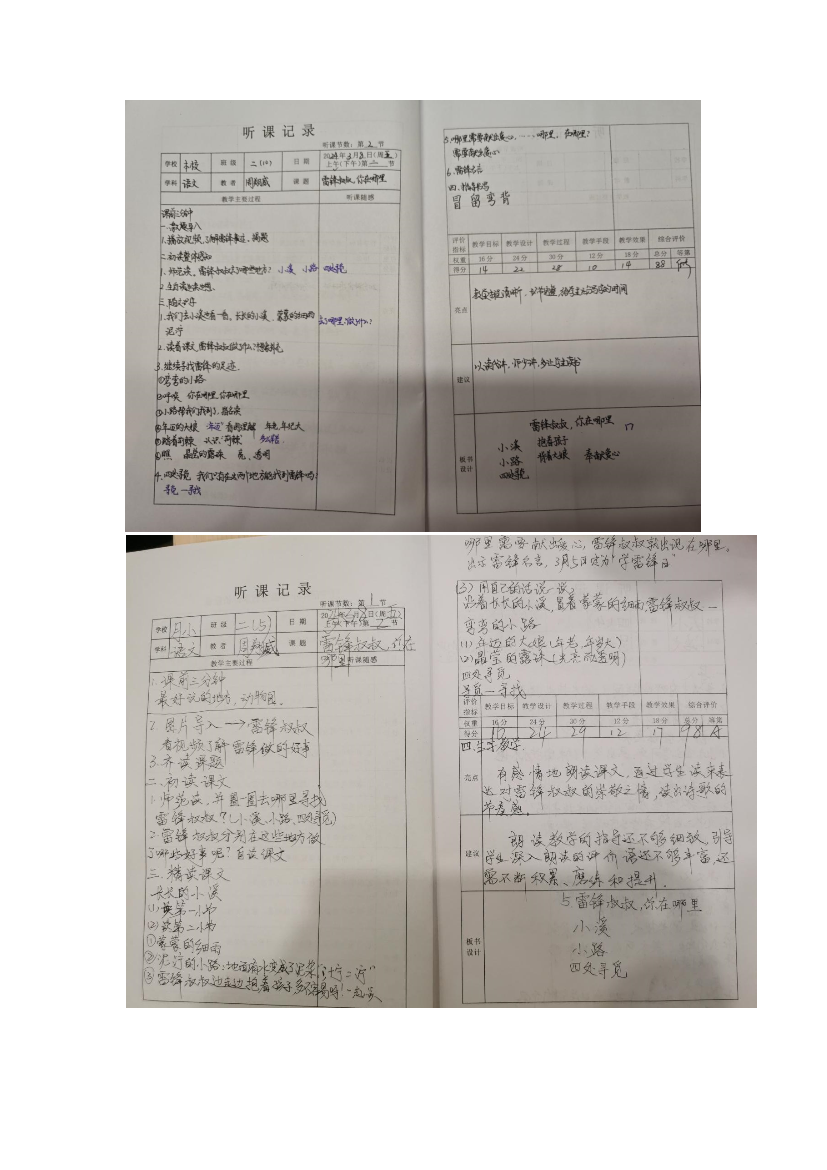 听课记录
听课节数：第 2 节
学校 班级 二(12) 日期 2024年3月8日(周五)
上午(下午)第二节
学科 语文 教者 周翔威 课题 雷锋叔叔,你在哪里
教学主要过程 听课随感
课前三分钟
一.激趣导入
1.播放视频,了解雷锋事迹,揭题
二.初读整体感知
1.师范读,雷锋叔叔去了哪些地方? 小溪 小路 四处寻觅
三.随文识字
1.我们去小溪边看一看。长长的小溪,蒙蒙的细雨 去了哪里,做了什么?
泥泞
2.读着课文,雷锋叔叔做了什么?
3.继续寻找雷锋的足迹.
①弯弯的小路
②呼唤 你在哪里,你在哪里
③小路帮我们找到了,指名读
④年迈的大娘 "年迈"看图理解 年老,年纪大
⑤踏着荆棘 认识"荆棘"
⑥瞧 晶莹的露珠 亮,透明
4.四处寻觅 我们只有在这两个地方能找到雷锋吗?
寻觅—寻找
5.哪里需要献出爱心,……哪里,在哪里?
需要献出爱心
6.雷锋名言
四.指导书写
冒 留 弯 背
评价指标 教学目标 教学设计 教学过程 教学手段 教学效果 综合评价
权重 16分 24分 30分 12分 18分 总分 等第
得分 14 22 28 10 14 88
亮点
建议 以读代讲,
板书设计
雷锋叔叔,你在哪里
小溪 抱着孩子
小路 背着大娘 奉献爱心
四处寻觅
听课记录
听课节数：第 1 节
学校 班级 二(5) 日期
上午(下午)第二节
学科 语文 教者 周翔威 课题 雷锋叔叔,你在
哪里
教学主要过程 听课随感
1.课前三分钟
最好玩的地方,动物园.
2.图片导入→雷锋叔叔
看视频了解雷锋做的好事
3.齐读课题
二.初读课文
1.师范读,并圈一圈去哪里寻找
雷锋叔叔?(小溪、小路、四处寻觅)
2.雷锋叔叔分别在这些地方做
了哪些好事呢?自读课文
三.精读课文
长长的小溪
(1)读第一小节
(2)读第二小节
①蒙蒙的细雨
②泥泞的小路:
③雷锋叔叔边走边抱着孩子
哪里需要献出爱心,雷锋叔叔就出现在哪里。
出示雷锋名言,3月5日定为"学雷锋日"
(3)用自己的话说一说。
沿着长长的小溪,冒着蒙蒙的细雨,雷锋叔叔—
弯弯的小路
(1)年迈的大娘(年老,年岁大)
(2)晶莹的露珠(光亮而透明)
四处寻觅
寻觅—寻找
评价指标 教学目标 教学设计 教学过程 教学手段 教学效果 综合评价
权重 16分 24分 30分 12分 18分 总分 等第
得分 24 29 12 17 98 A
四.生字教学.
亮点 有感情地朗读课文,通过学生读来表
达对雷锋叔叔的崇敬之情,读出诗歌的
节奏感。
建议 朗读教学的指导还不够细致,引导
学生深入朗读的评价语还不够丰富,还
需不断积累、磨练和提升.
板书设计
5 雷锋叔叔,你在哪里
小溪
小路
四处寻觅